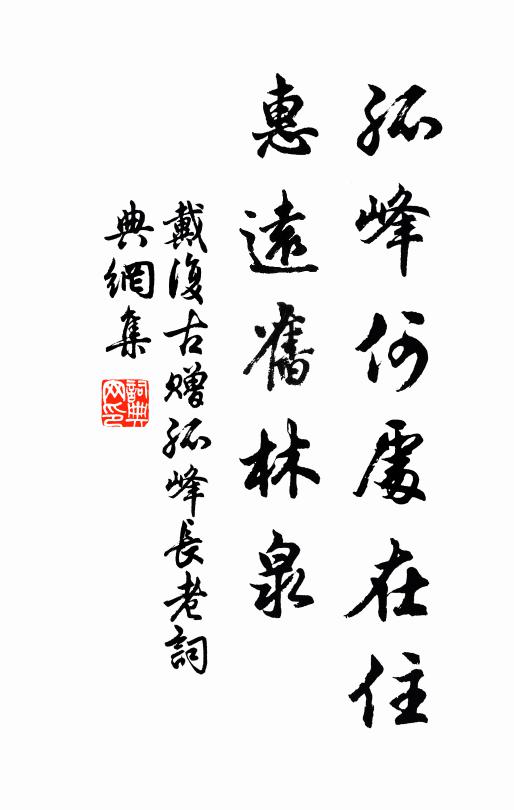 孤峰何處在住
惠遠舊林泉
戴復古贈孤峰長老詞
典網集
詞典
网印